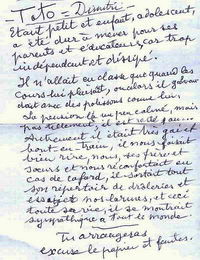 - Tito = Dimitri -
Etant petit et enfant, adolescent,
a été dur à mener pour ses
parents et éducateurs, car trop
indépendant et dissipé.
Il n'allait en classe que quand les
cours lui plaisait, ou alors il
dait avec des polissons comme lui.
La pension l'a un peu calmé, mais
pas tellement, il est
Autrement il était très gai et
bout en train, il nous faisait
bien rire, nous, ses frères et
sœurs et nous réconfortait en
cas de cafard, il sortait tout
son répertoire de drôleries et
essuyait nos larmes, et ceci
toute sa vie, il se montrait
sympathique à tout le monde.
Tu arrangeras
excuse le papier et fautes.